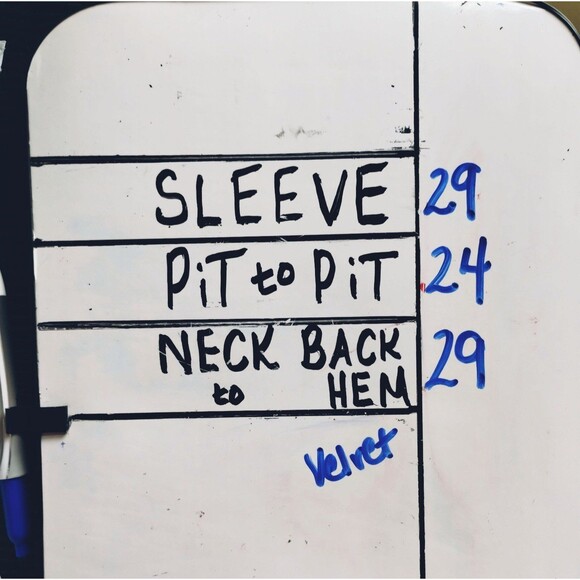 SLEEVE 29
PiT to PiT 24
NECK BACK 29
to HEM
Velvet